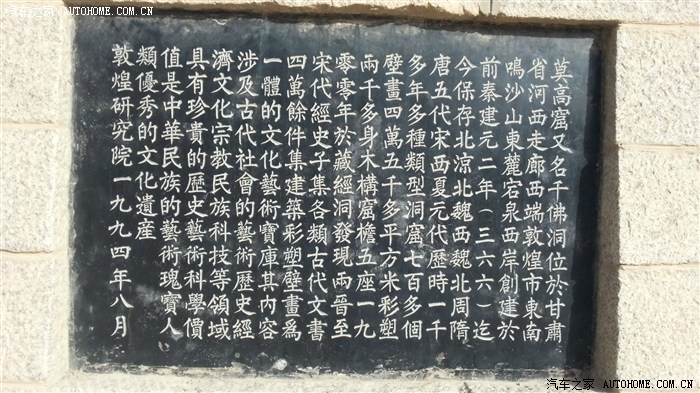 汽车之家 AUTOHOME.COM.CN
莫高窟又名千佛洞位於甘肅
省河西走廊西端敦煌市東南
鳴沙山東麓宕泉西岸創建於
前秦建元二年(三六六)迄
今保存北涼北魏西魏北周隋
唐五代宋西夏元代歷時一千
多年多種類型洞窟七百多個
壁畫四萬五千多平方米彩塑
兩千多身木構窟檐五座一九
零零年於藏經洞發現兩晉至
宋代經史子集各類古代文書
四萬餘件集建築彩塑壁畫爲
一體的文化藝術寶庫其內容
涉及古代社會的藝術歷史經
濟文化宗教民族科技等領域
具有珍貴的歷史藝術科學價
值是中華民族的藝術瑰寶人
類優秀的文化遺産
敦煌研究院一九九四年八月
汽车之家 AUTOHOME.COM.CN